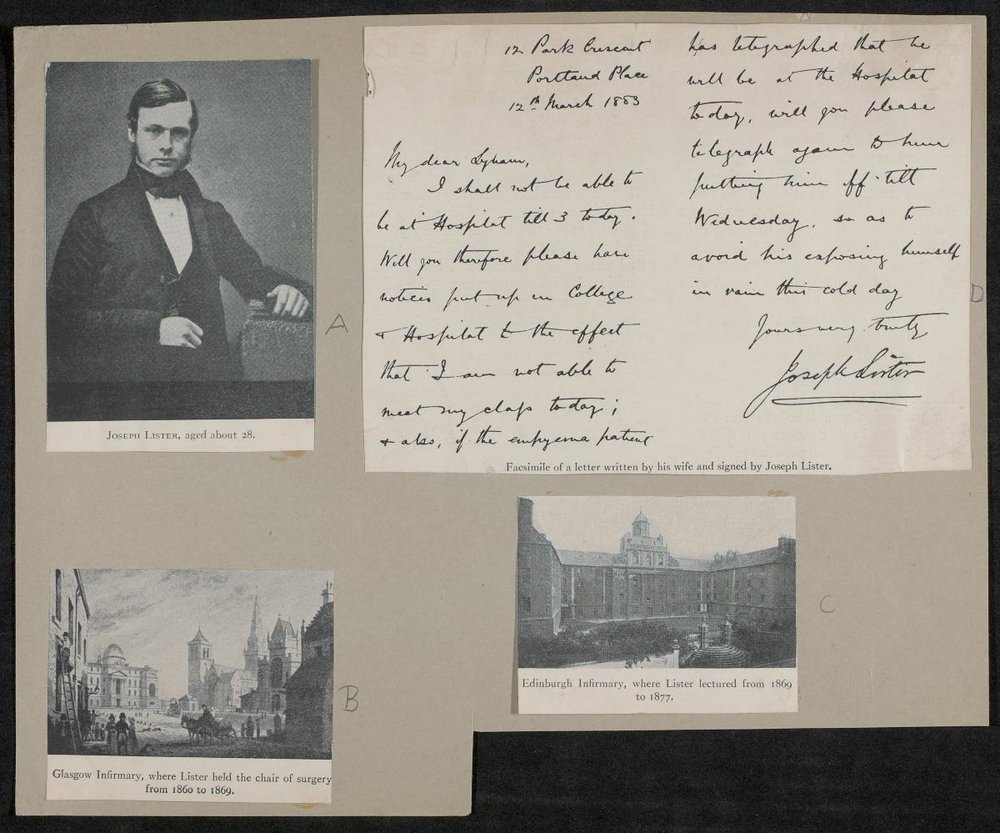 A
JOSEPH LISTER, aged about 28.
12 Park Crescent
Portland Place
12th March 1883
My dear Lyham,
I shall not be able to
be at Hospital till 3 today.
Will you therefore please have
notices put up in College
& Hospital to the effect
that I am not able to
meet my class today;
& also, if the empyema patient
has telegraphed that he
will be at the Hospital
today, will you please
telegraph again to him
putting him off till
Wednesday, so as to
avoid his exposing himself
in vain this cold day
Yours very truly
Joseph Lister
D
Facsimile of a letter written by his wife and signed by Joseph Lister.
B
Glasgow Infirmary, where Lister held the chair of surgery
from 1860 to 1869.
C
Edinburgh Infirmary, where Lister lectured from 1869
to 1877.